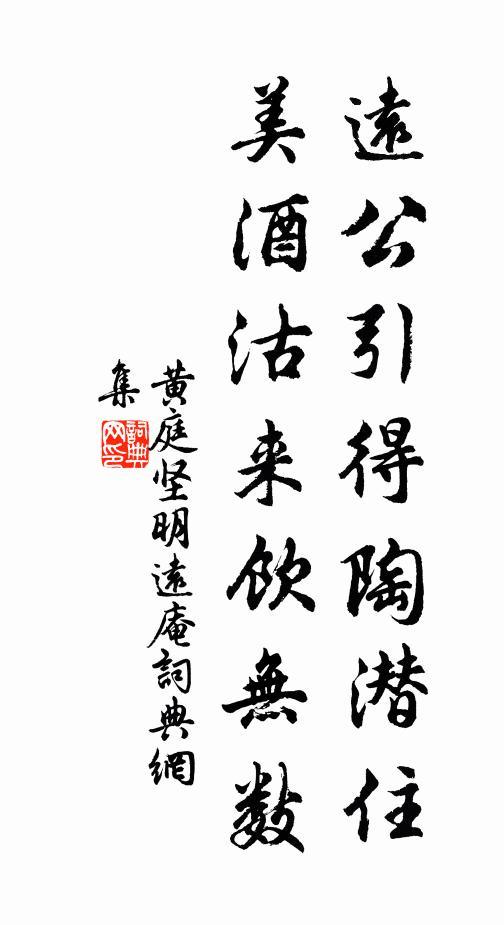 遠公引得陶潜住
美酒沽来飲無數
黄庭坚明遠庵詞典網
集
詞典网印